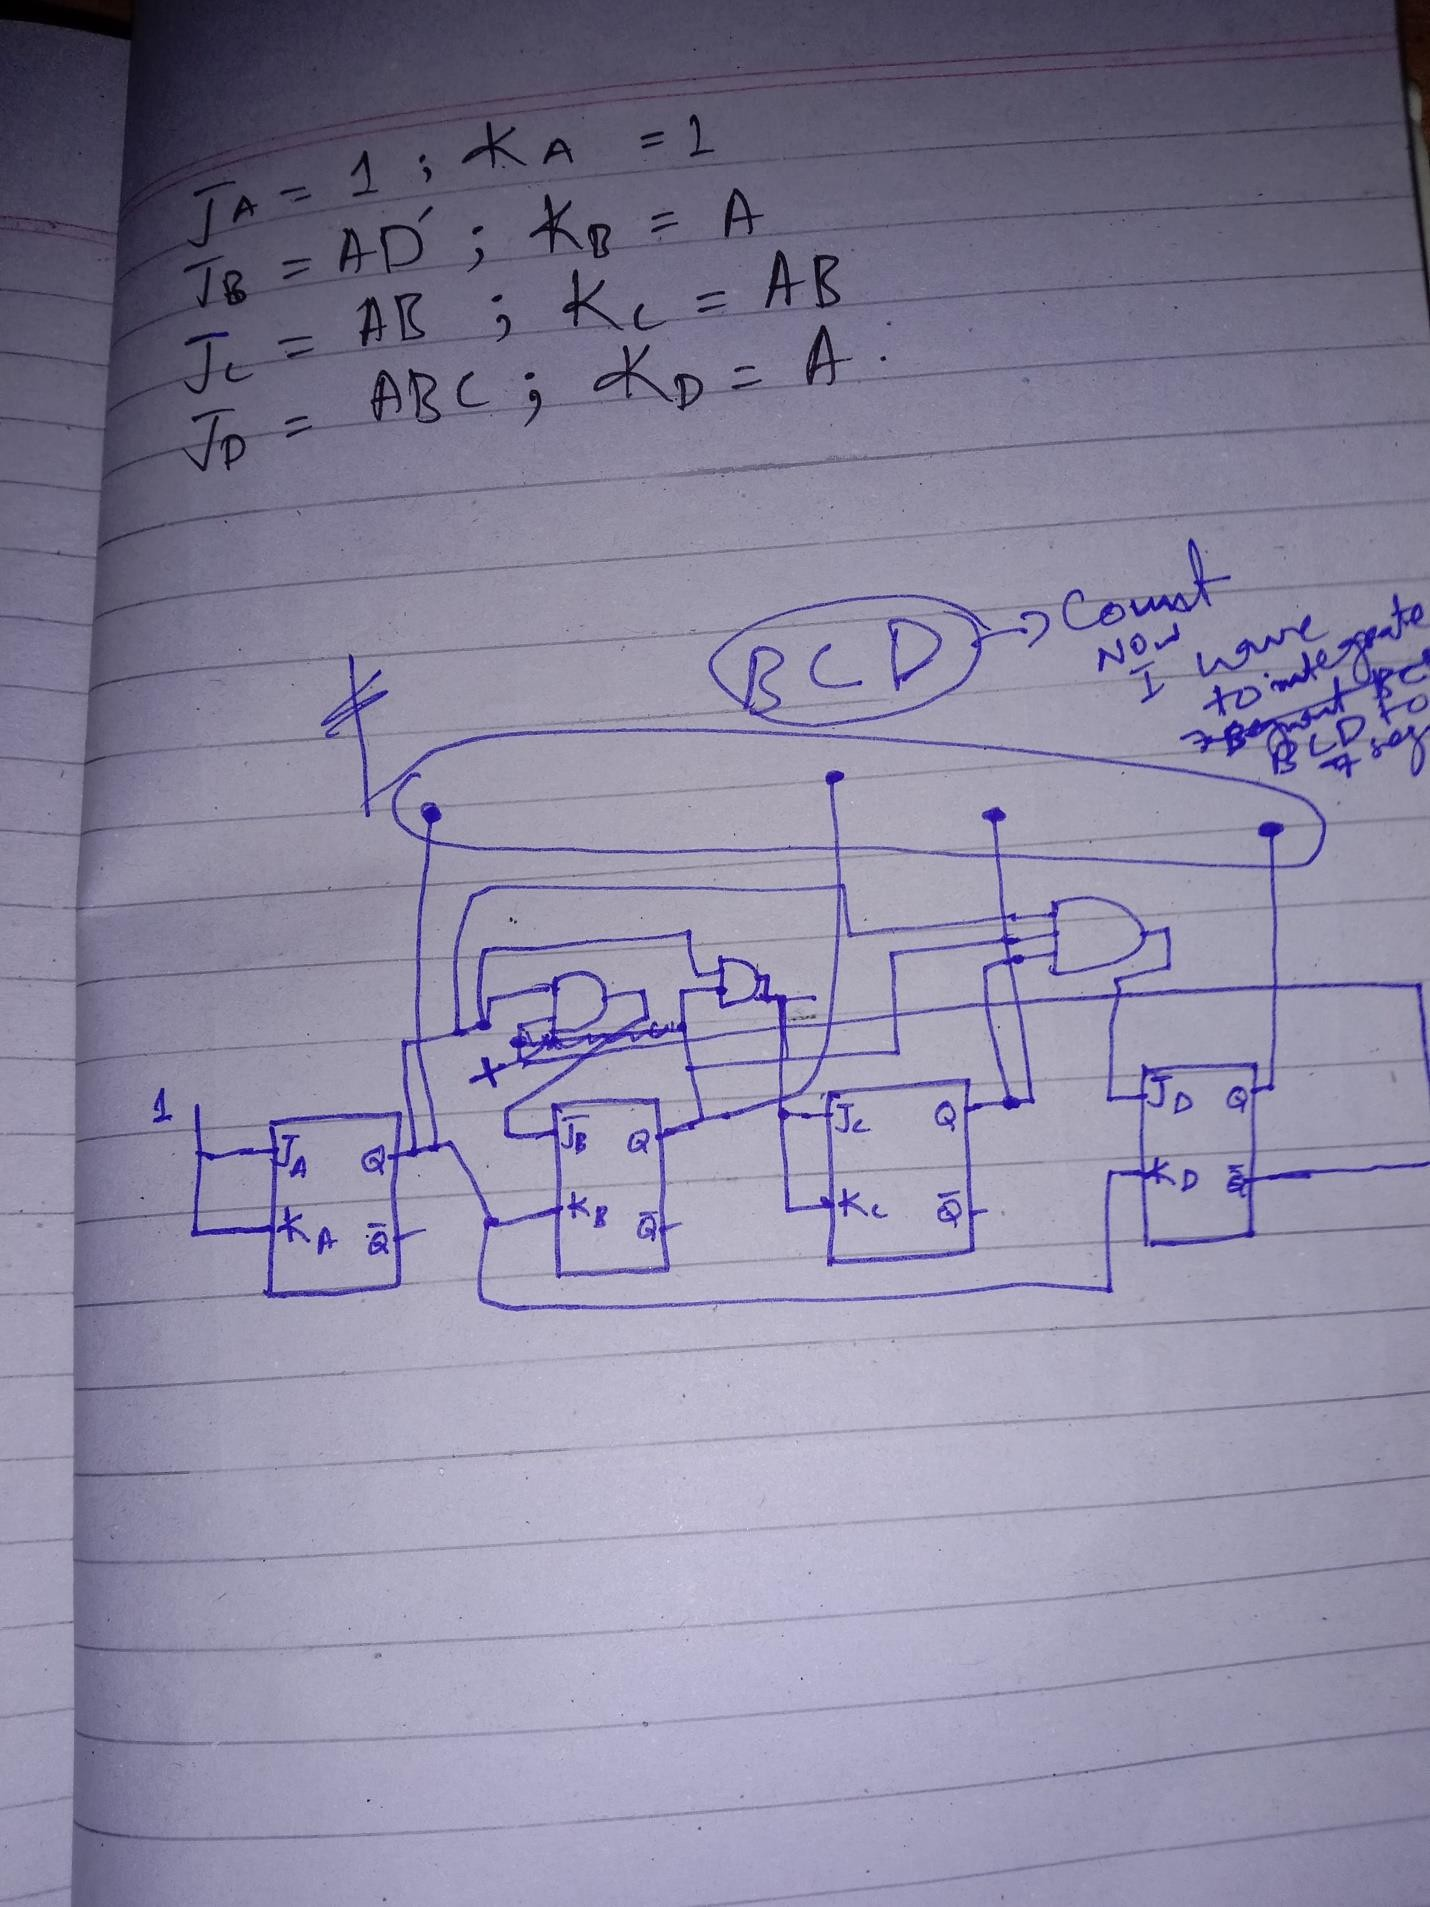 J_A = 1 ; K_A = 1
J_B = AD' ; K_B = A
J_C = AB ; K_C = AB
J_D = ABC ; K_D = A.
BCD → Count
Now
I have
to integrate
BCD to
7 seg
1
J_A Q
K_A Q̅
J_B Q
K_B Q̅
J_C Q
K_C Q̅
J_D Q
K_D Q̅